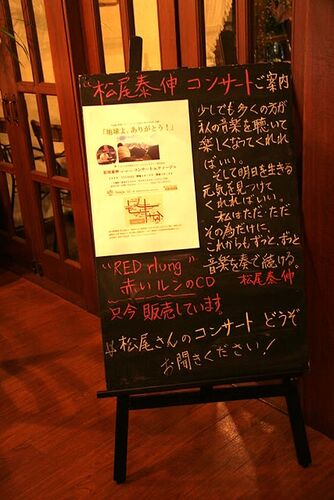 松尾泰伸 コンサートご案内
「地球よ、ありがとう！」
少しでも多くの方が
私の音楽を聴いて
楽しくなってくれれ
ばいい。
そして明日を生きる
元気を見つけて
くれればいい。
私はただ・ただ
その為だけに、
これからもずっと、ずっと
音楽を奏で続ける。
松尾泰伸
"RED rlung"
赤いルンのCD
只今 販売しています。
松尾さんのコンサート どうぞ
お聞きください！